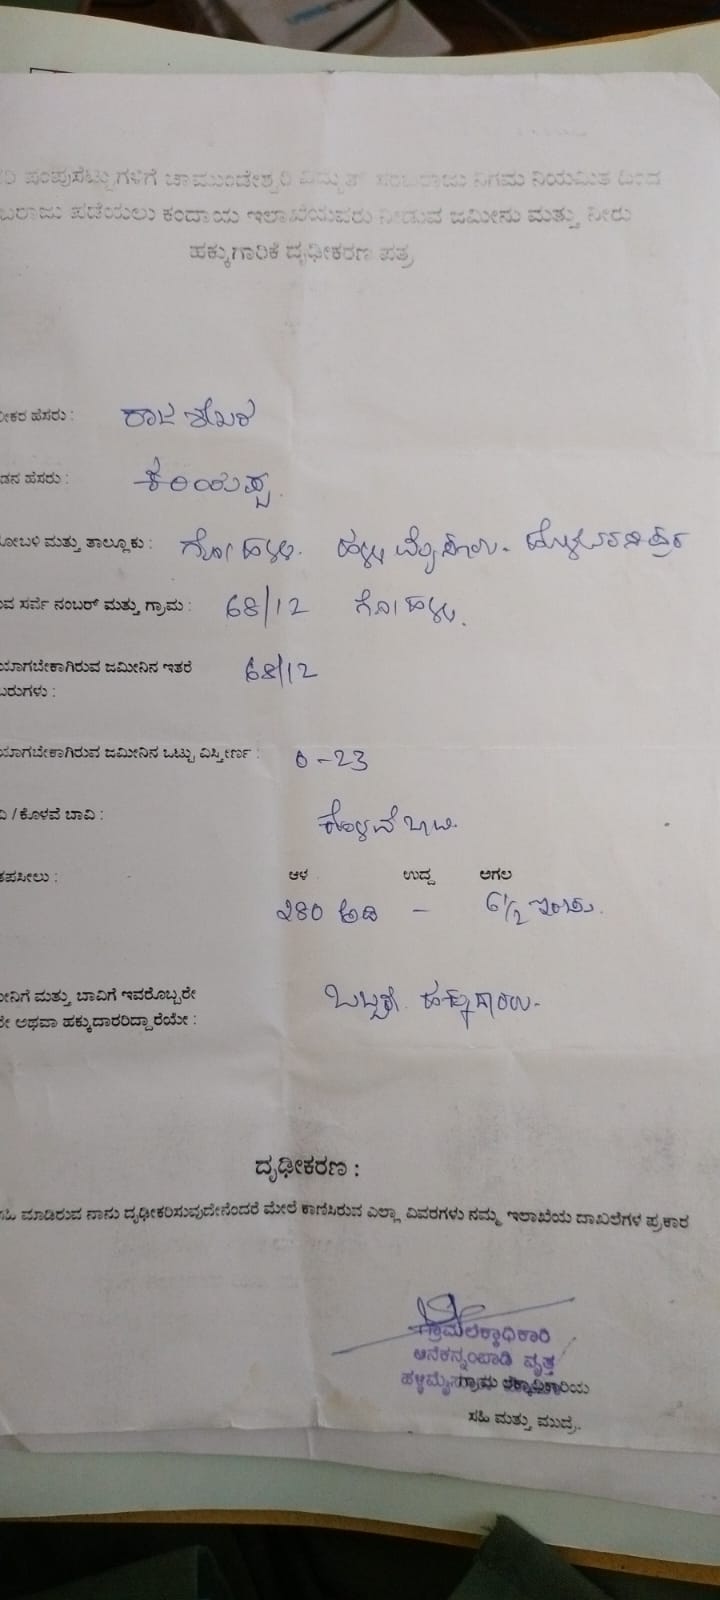 ಪಂಪುಸೆಟ್ಟುಗಳಿಗೆ ಚಾಮುಂಡೇಶ್ವರಿ ವಿದ್ಯುತ್ ಸರಬರಾಜು ನಿಗಮ ನಿಯಮಿತ ದಿಂದ
ಬರಾಜು ಪಡೆಯಲು ಕಂದಾಯ ಇಲಾಖೆಯವರು ನೀಡುವ ಜಮೀನು ಮತ್ತು ನೀರು
ಹಕ್ಕುಗಾರಿಕೆ ದೃಢೀಕರಣ ಪತ್ರ
ೀಕರ ಹೆಸರು : ರಾಜಶೇಖರ
ಡನ ಹೆಸರು : ಕರಿಯಪ್ಪ
ೋಬಳಿ ಮತ್ತು ತಾಲ್ಲೂಕು : ಗೋಹಳ್ಳಿ. ಹಳ್ಳಿ ಮೈಸೂರು. ಹೊಳೆನರಸೀಪುರ
ವ ಸರ್ವೆ ನಂಬರ್ ಮತ್ತು ಗ್ರಾಮ : 68/12 ಗೋಹಳ್ಳಿ.
ಯಾಗಬೇಕಾಗಿರುವ ಜಮೀನಿನ ಇತರೆ 68/12
ಬರುಗಳು :
ಯಾಗಬೇಕಾಗಿರುವ ಜಮೀನಿನ ಒಟ್ಟು ವಿಸ್ತೀರ್ಣ : 0-23
ವಿ / ಕೊಳವೆ ಬಾವಿ : ಕೊಳವೆ ಬಾವಿ.
ತಪಸೀಲು : ಆಳ ಉದ್ದ ಅಗಲ
280 ಅಡಿ - 6 1/2 ಇಂಚು.
ೀನಿಗೆ ಮತ್ತು ಬಾವಿಗೆ ಇವರೊಬ್ಬರೇ ಒಬ್ಬರೇ ಹಕ್ಕುದಾರರು.
ರೇ ಅಥವಾ ಹಕ್ಕುದಾರರಿದ್ದಾರೆಯೇ :
ದೃಢೀಕರಣ :
ಸಹಿ ಮಾಡಿರುವ ನಾನು ದೃಢೀಕರಿಸುವುದೇನೆಂದರೆ ಮೇಲೆ ಕಾಣಿಸಿರುವ ಎಲ್ಲಾ ವಿವರಗಳು ನಮ್ಮ ಇಲಾಖೆಯ ದಾಖಲೆಗಳ ಪ್ರಕಾರ
ಗ್ರಾಮಲೆಕ್ಕಾಧಿಕಾರಿ
ಆನೆಕನ್ನಂಬಾಡಿ ವೃತ್ತ
ಗ್ರಾಮ ಲೆಕ್ಕಾಧಿಕಾರಿಯ
ಸಹಿ ಮತ್ತು ಮುದ್ರೆ.